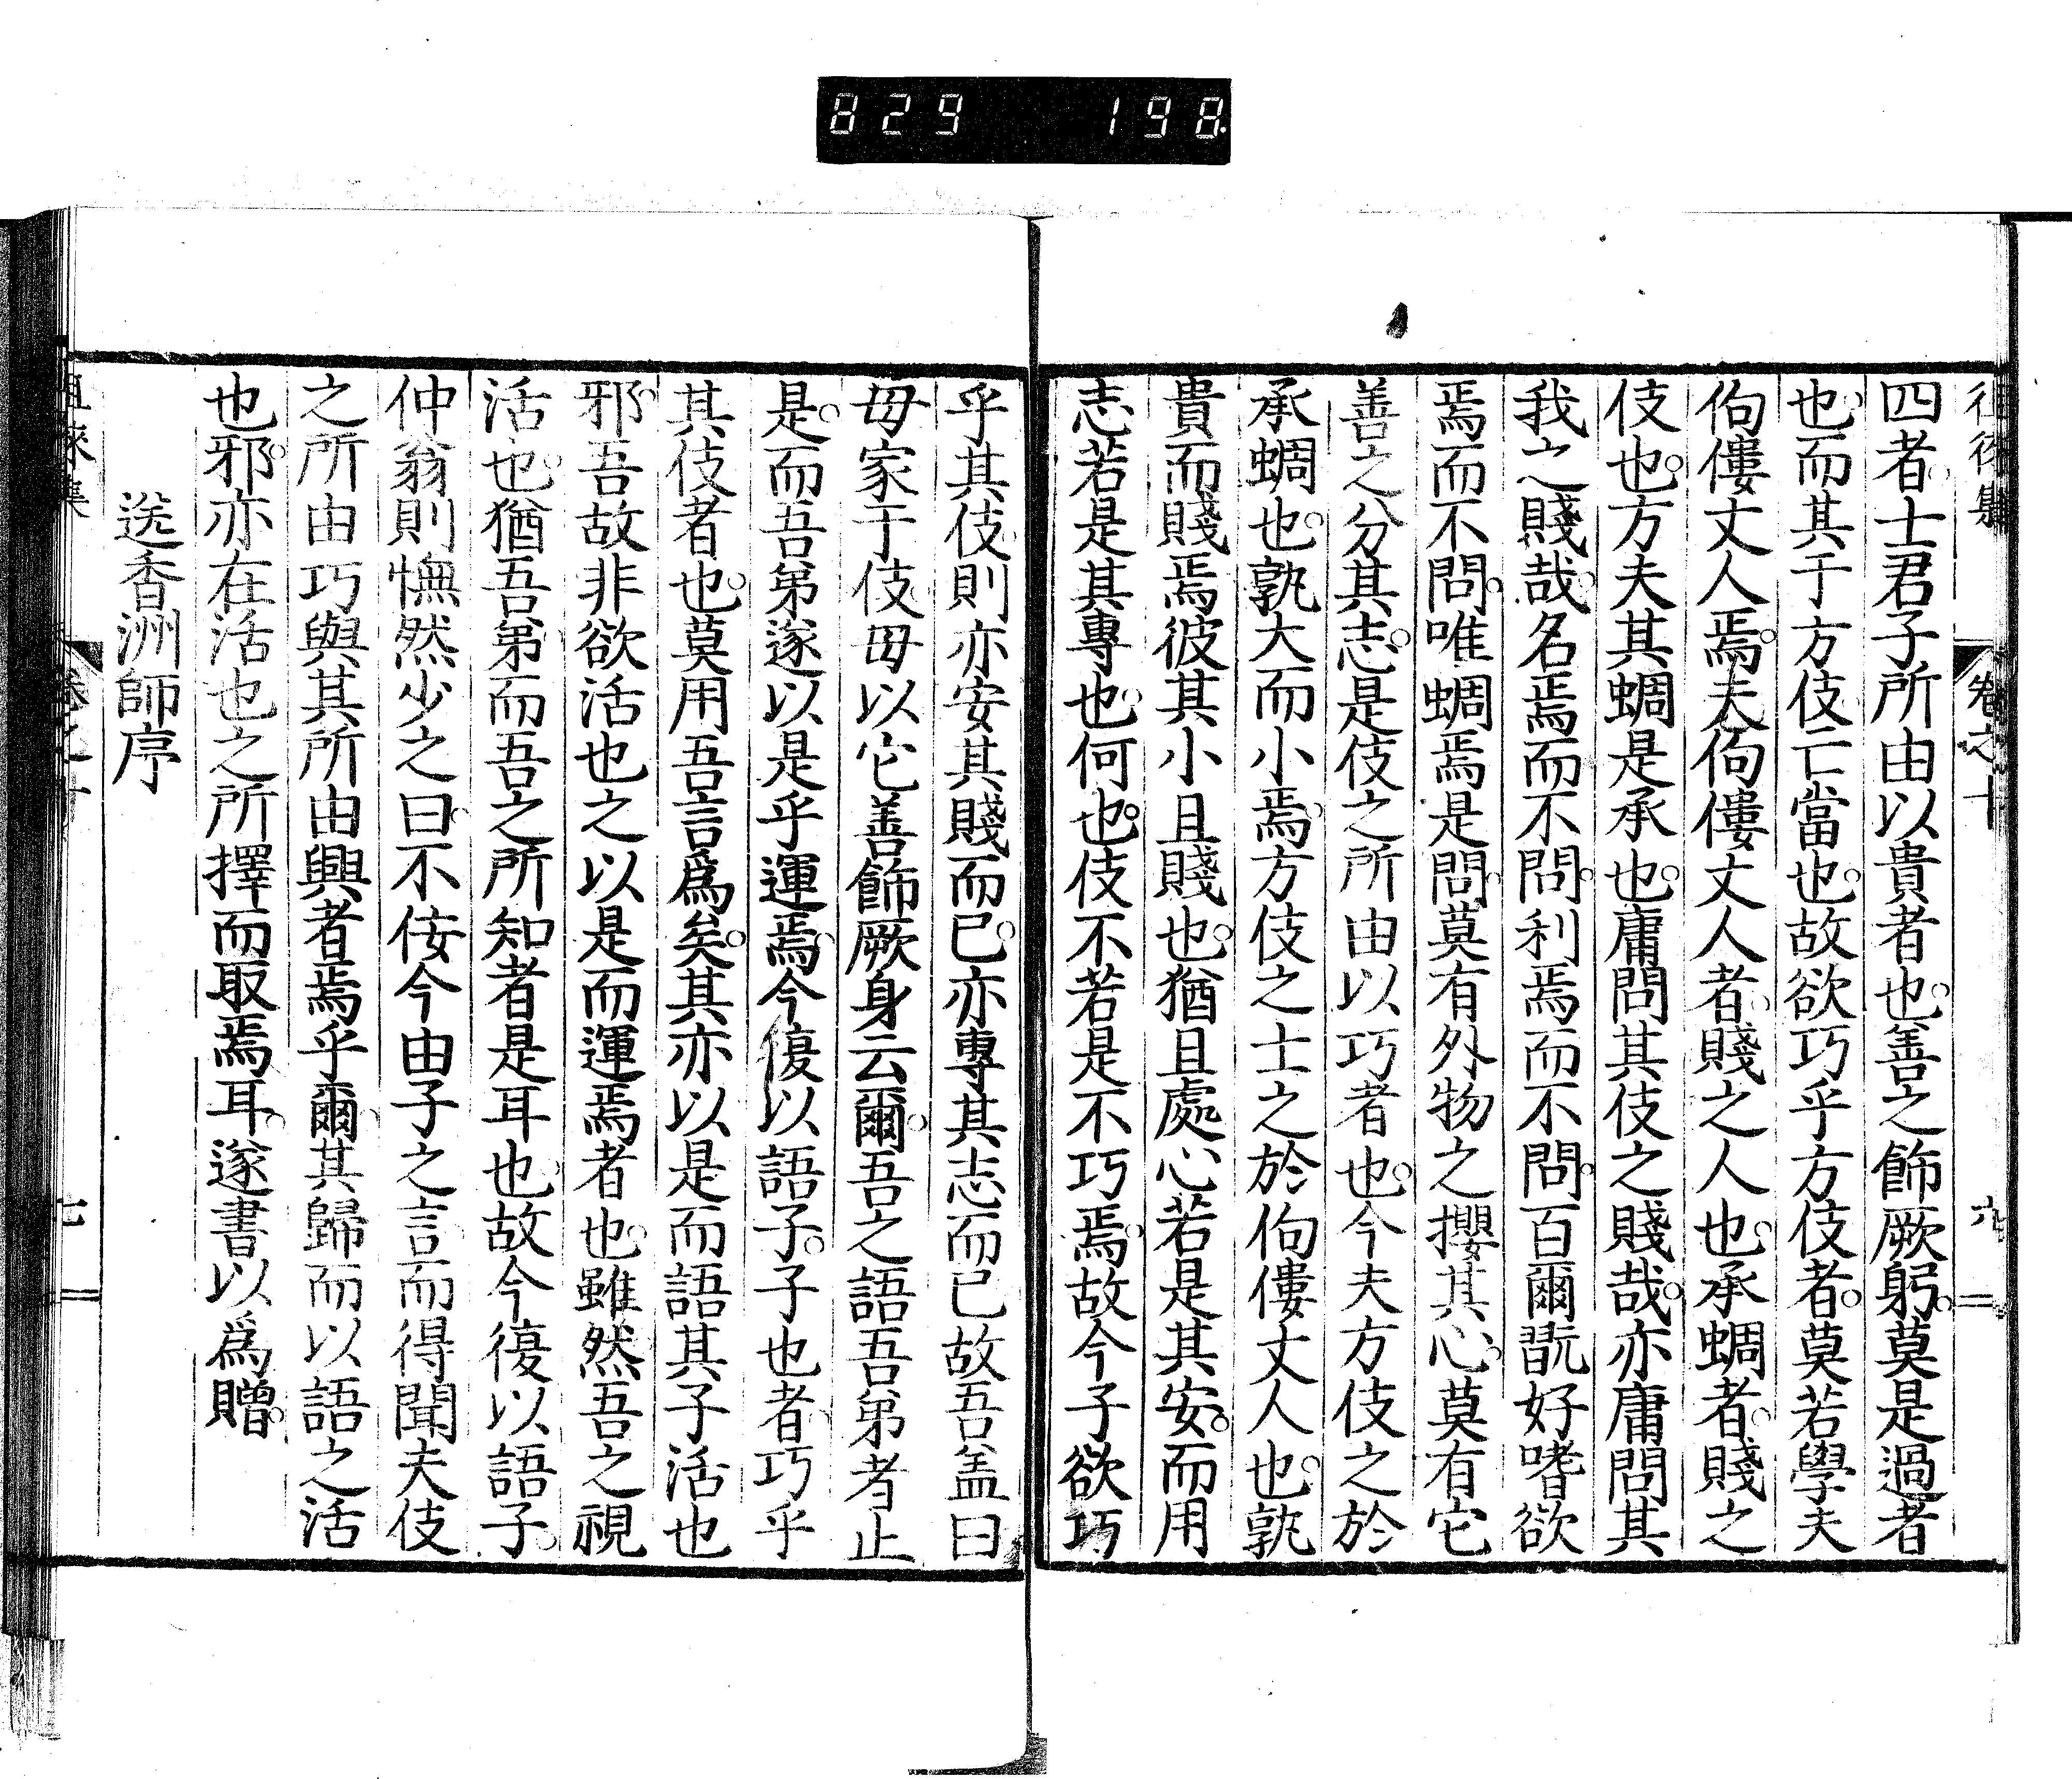 829 198
卷之十
六
四者士君子所由以貴者也善之飾厥躬莫是過者
也而其于方伎亡當也故欲巧乎方伎者莫若學夫
佝僂丈人焉夫佝僂丈人者賤之人也承蜩者賤之
伎也方夫其蜩是承也庸問其伎之賤哉亦庸問其
我之賤哉名焉而不問利焉而不問百爾翫好嗜欲
焉而不問唯蜩焉是問莫有外物之攖其心莫有它
善之分其志是伎之所由以巧者也今夫方伎之於
承蜩也孰大而小焉方伎之士之於佝僂丈人也孰
貴而賤焉彼其小且賤也猶且處心若是其安而用
志若是其專也何也伎不若是不巧焉故今子欲巧
乎其伎則亦安其賤而已亦專其志而已故吾盖曰
毋家于伎毋以它善飾厥身云爾吾之語吾弟者止
是而吾弟遂以是乎運焉今復以語子子也者巧乎
其伎者也莫用吾言爲矣其亦以是而語其子活也
邪吾故非欲活也之以是而運焉者也雖然吾之視
活也猶吾弟而吾之所知者是耳也故今復以語子
仲翁則憮然少之曰不佞今由子之言而得聞夫伎
之所由巧與其所由興者焉乎爾其歸而以語之活
也邪亦在活也之所擇而取焉耳遂書以爲贈
送香洲師序
七